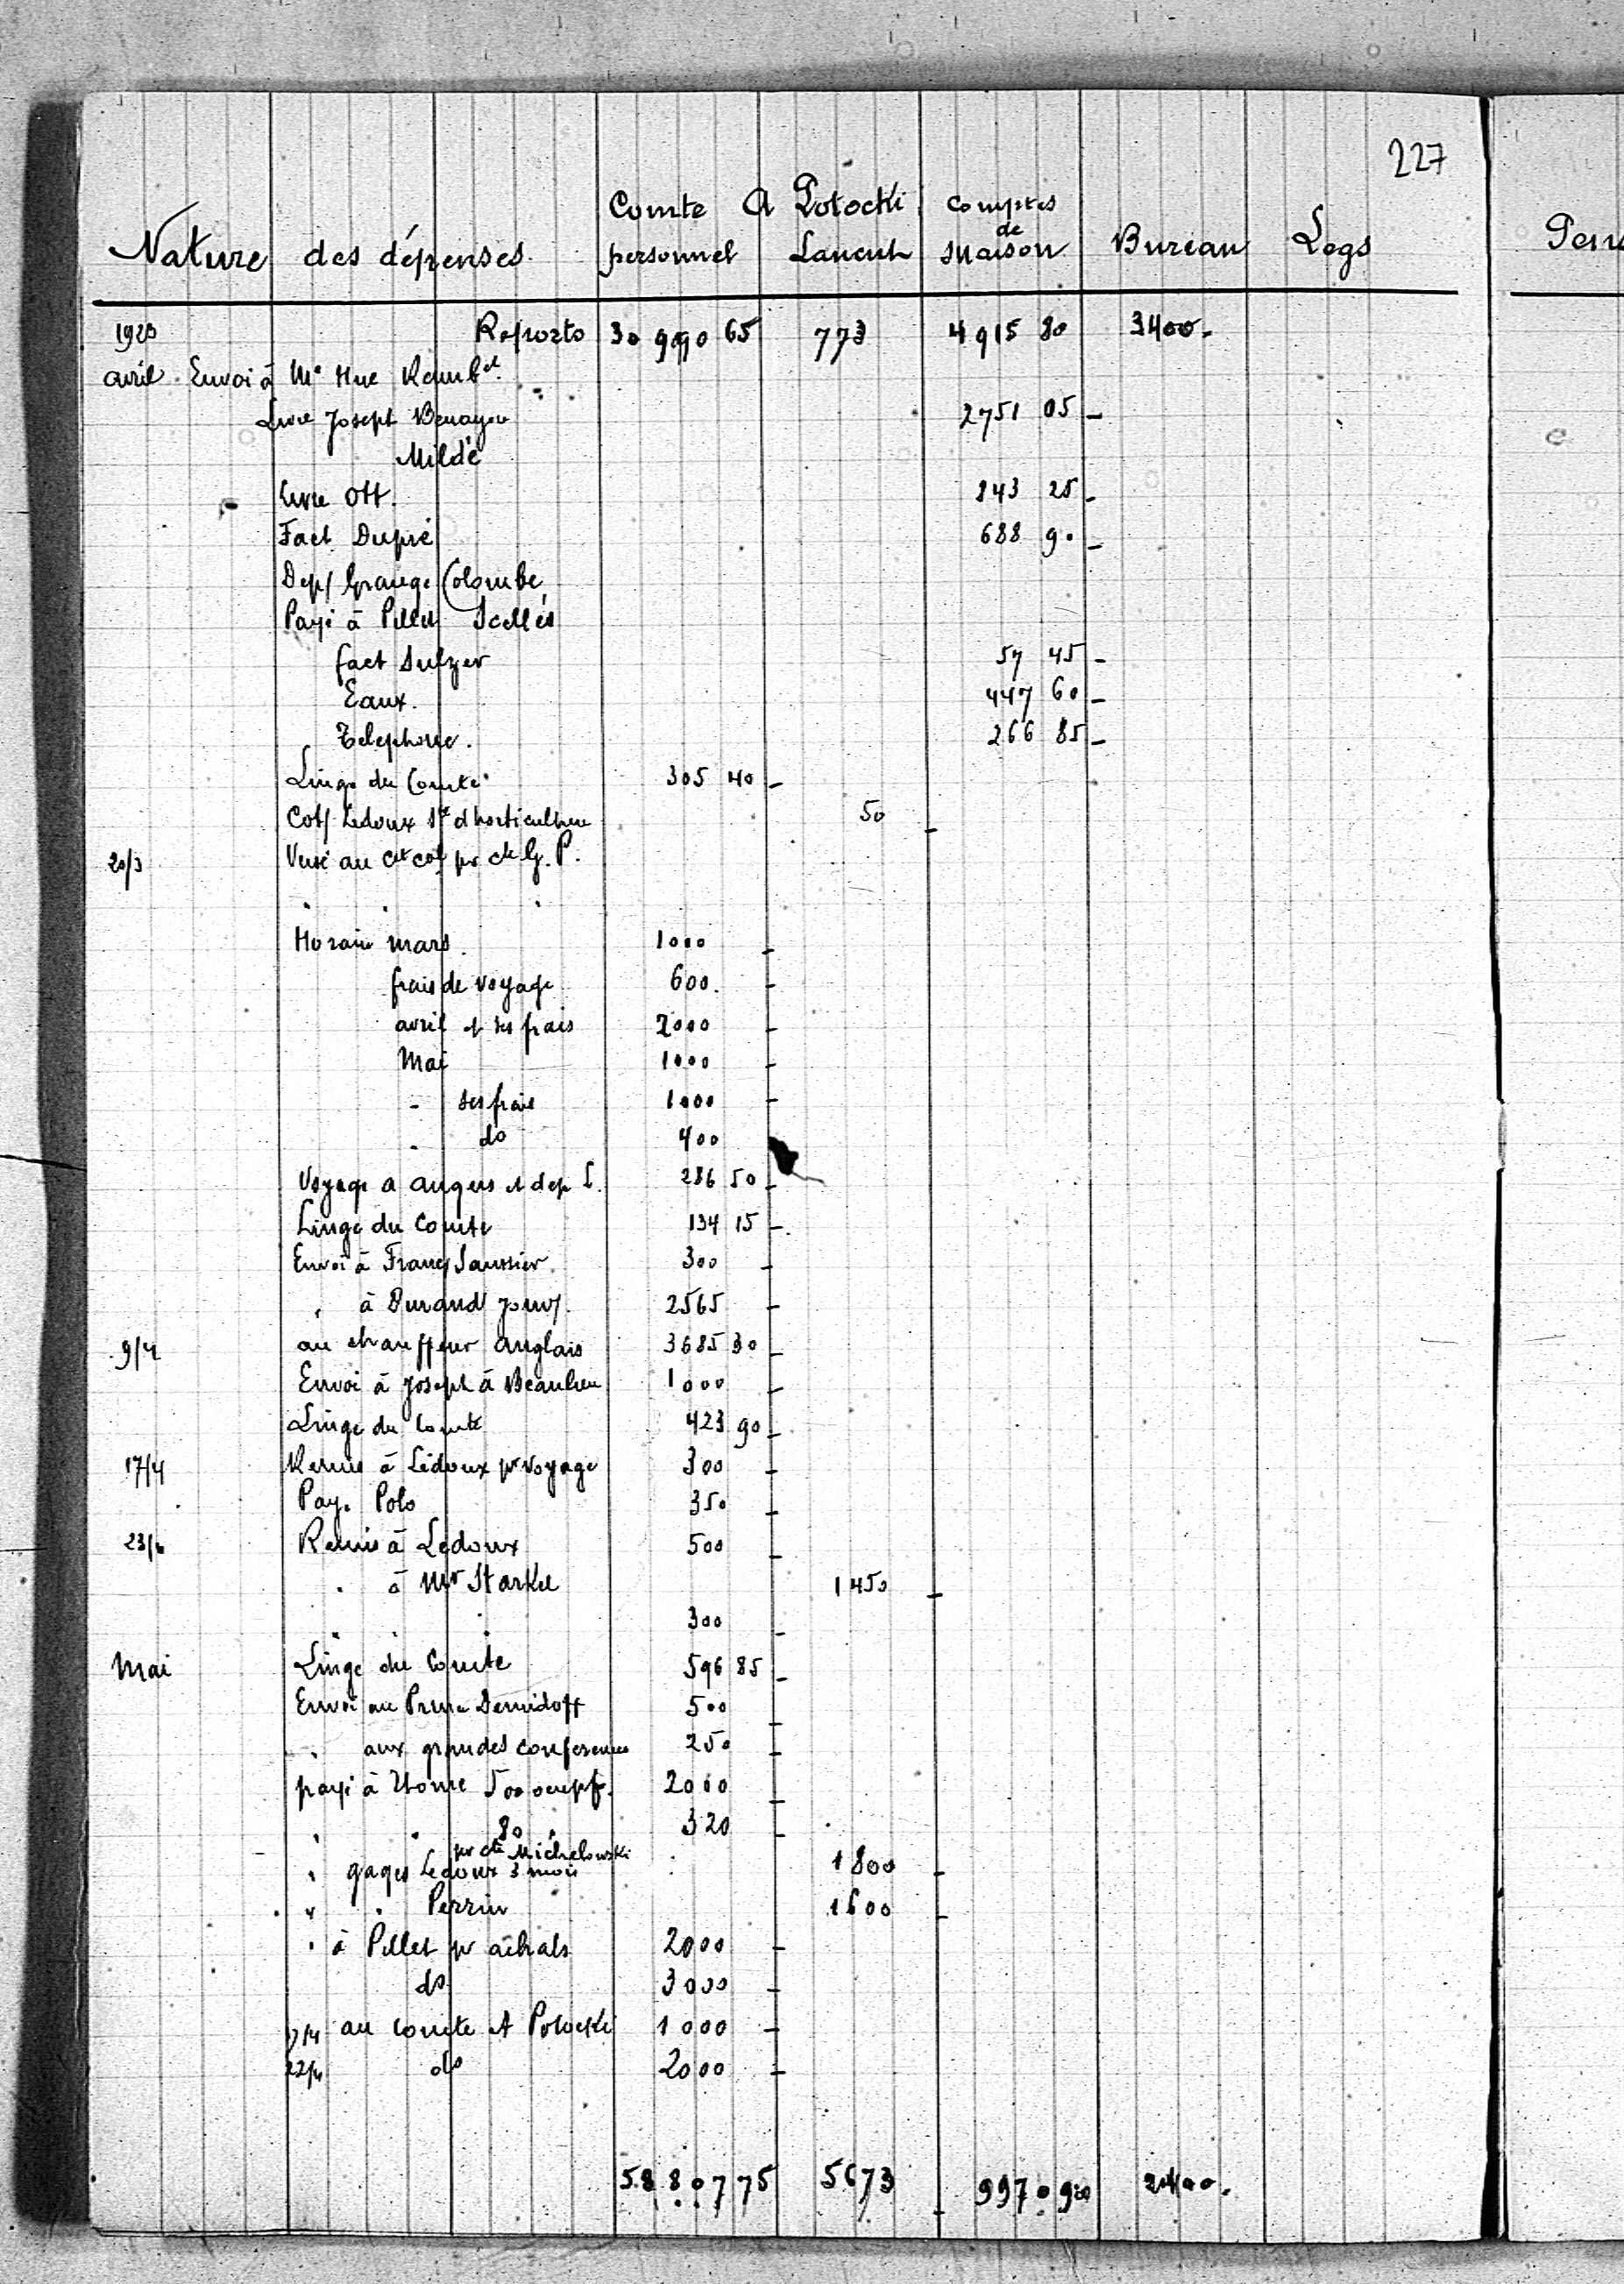 227
Comte A Potocki
Nature des dépenses personnel Lancut Comptes de Maison Bureau Legs Pers
1923 Reports 30 990 65 773 4 915 80 3400.
avril Envoi à Me Hue Rembt
Livre Joseph Benayou 2751 05 -
Mildé
Livre Ott. 843 25 -
Fact Dupré 688 90 -
Dep/ Grange Colombe
Payé à Pillet Scellés
fact Sulzer 57 45 -
Eaux. 447 60 -
Telephone. 266 85 -
Linge du Comte 305 40 -
Cot/ Ledoux Sté d'horticulture 50 -
20/3 Versé au Ct Col pr cte G. P.
" " "
Moraine mars. 1000 -
frais de voyage 600. -
avril et ses frais 2000 -
Mai 1000 -
- ses frais 1000 -
. do 400
Voyage a Angers et dep L. 286 50 -
Linge du Comte 134 15 -
Envoi à Franç Saussier. 300 -
" à Durand Jouv/. 2565 -
9/4 au chauffeur Anglais 3685 30 -
Envoi à Joseph à Beaulieu 1000 -
Linge du Comte 423 90 -
17/4 Remis à Ledoux pr voyage 300 -
Payé Polo 350 -
23/4 Remis à Ledoux 500 -
" à Mr Starkel 1450 -
" " " 300 -
Mai Linge du Comte 596 85 -
Envoi au Prince Demidoff 500 -
" aux grandes conferences 250 -
payé à 500 2000 -
" " 80 " 320 -
pr cte Michelowski
" gages Ledoux 3 mois 1800 -
" " Perrin 1600 -
" à Pillet pr achats 2000 -
do 3000 -
7/4 au Comte A Potocki 1000 -
22/4 do 2000 -
58 807 75 5673 9970 90 3400.